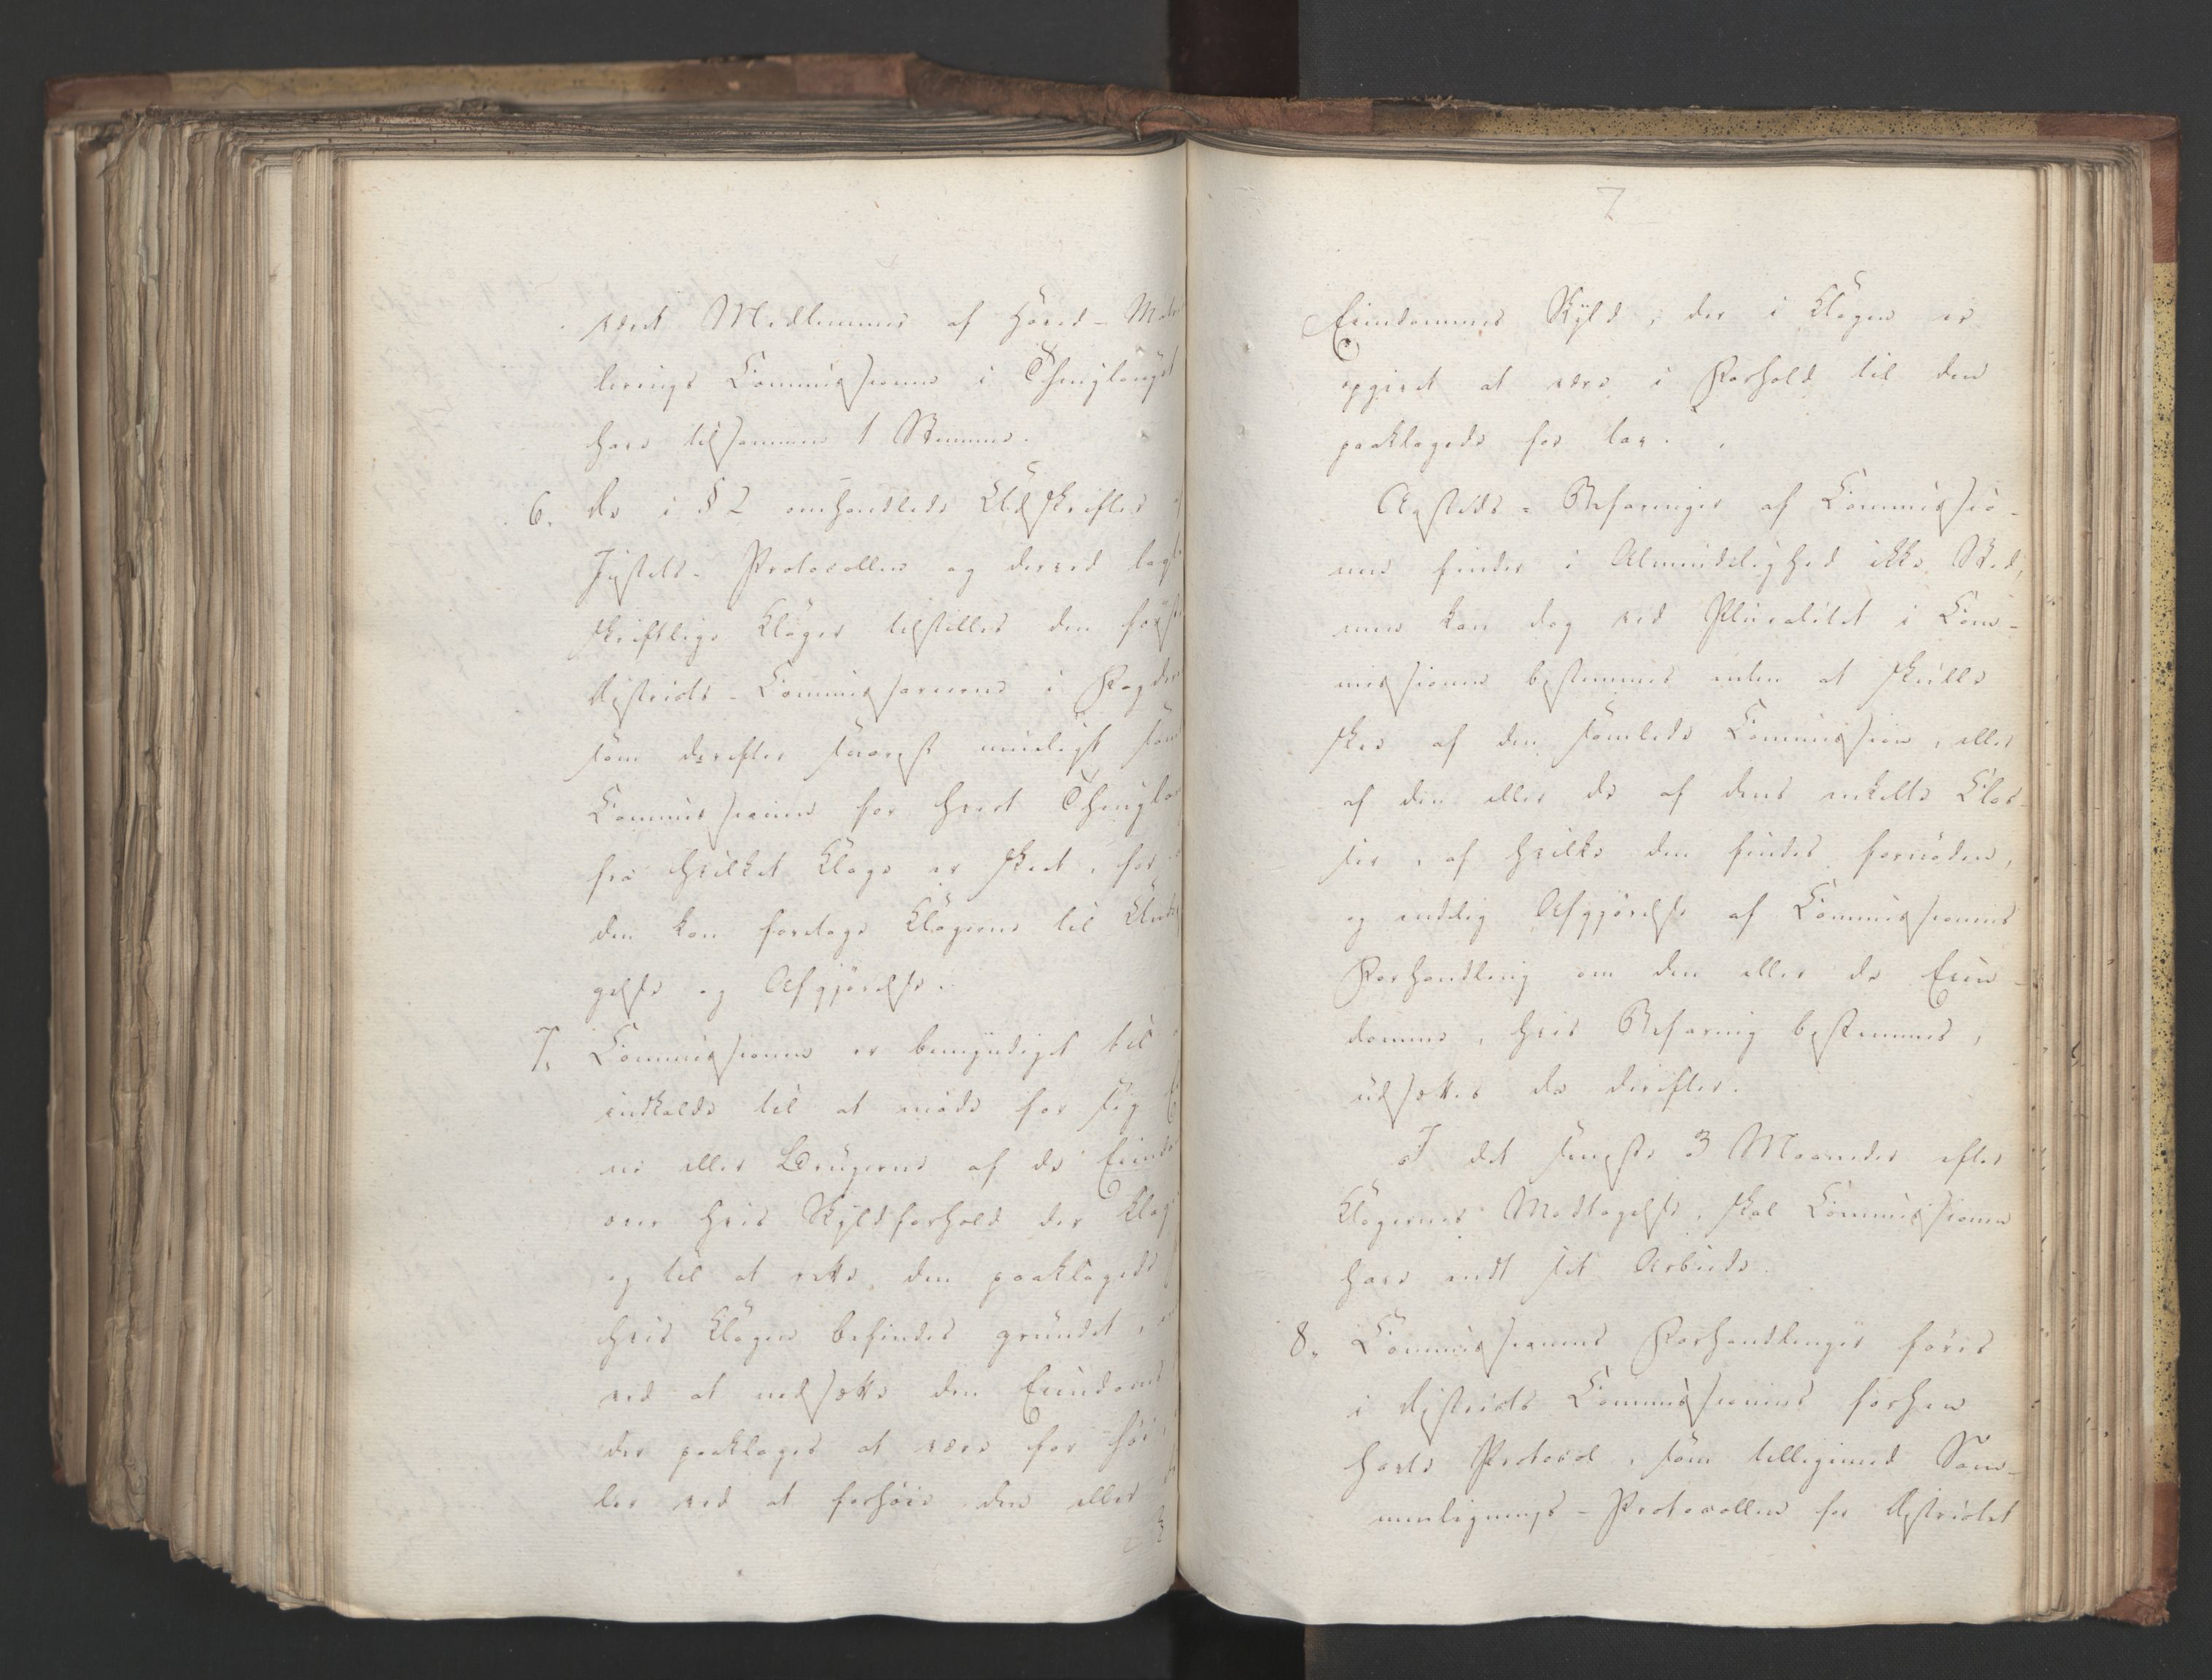 været Medlemmer af Hoved-Matri
lerings Commissionen i Thinglauget
have tilsammen 1 Stemme.
6. De i § 2 omhandlede Udskrifter
Justits-Protocollen og derved lagt
skriftlige Klager tilstilles den første
Districts-Commissairerne i Fogder
som derefter snarest mueligt sam
Commissionen for hvert Thinglau
fra hvilket Klage er skeet, for
den kan foretage Klagerne til Under
gelse og Afgjørelse.
7. Commissionen er bemyndiget til
indkalde til at møde for sig E
ne eller Brugerne af de Eiendo
over hvis Skyldforhold der klag
og til at rette den paaklagede
hvis Klagen befindes grundet,
ved at nedsætte den Eiendoms
der paaklages at være for høi
ler ved at forhøie den eller
7
Eiendommes Skyld, der i Klagen er
opgivet at være i Forhold til den
paaklagede for lav.
Aasteds-Befaringer af Commissio-
nen finder i Almindelighed ikke Sted,
men kan dog ved Pluralitet i Com-
missionen bestemmes enten at skulle
skee af den samlede Commission, eller
af den eller de af dens enkelte Clas-
ser, af hvilke den findes fornøden,
og endelig Afgjørelse af Commissionens
Forhandling om den eller de Eien-
domme, hvis Befaring bestemmes,
udsættes da derefter.
I det seneste 3 Maaneder efter
Klagernes Modtagelse, skal Commissionen
have endt sit Arbeide.
8. Commissionens Forhandlinger føres
i Districts Commissionens forhen
havte Protocol, som tilligemed Sam-
menlignings-Protocollen for Districtet